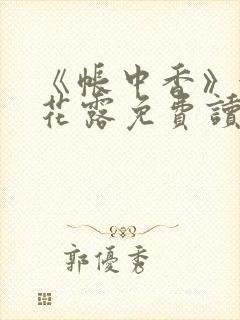 《帳中香》
花露免費讀
郭優秀